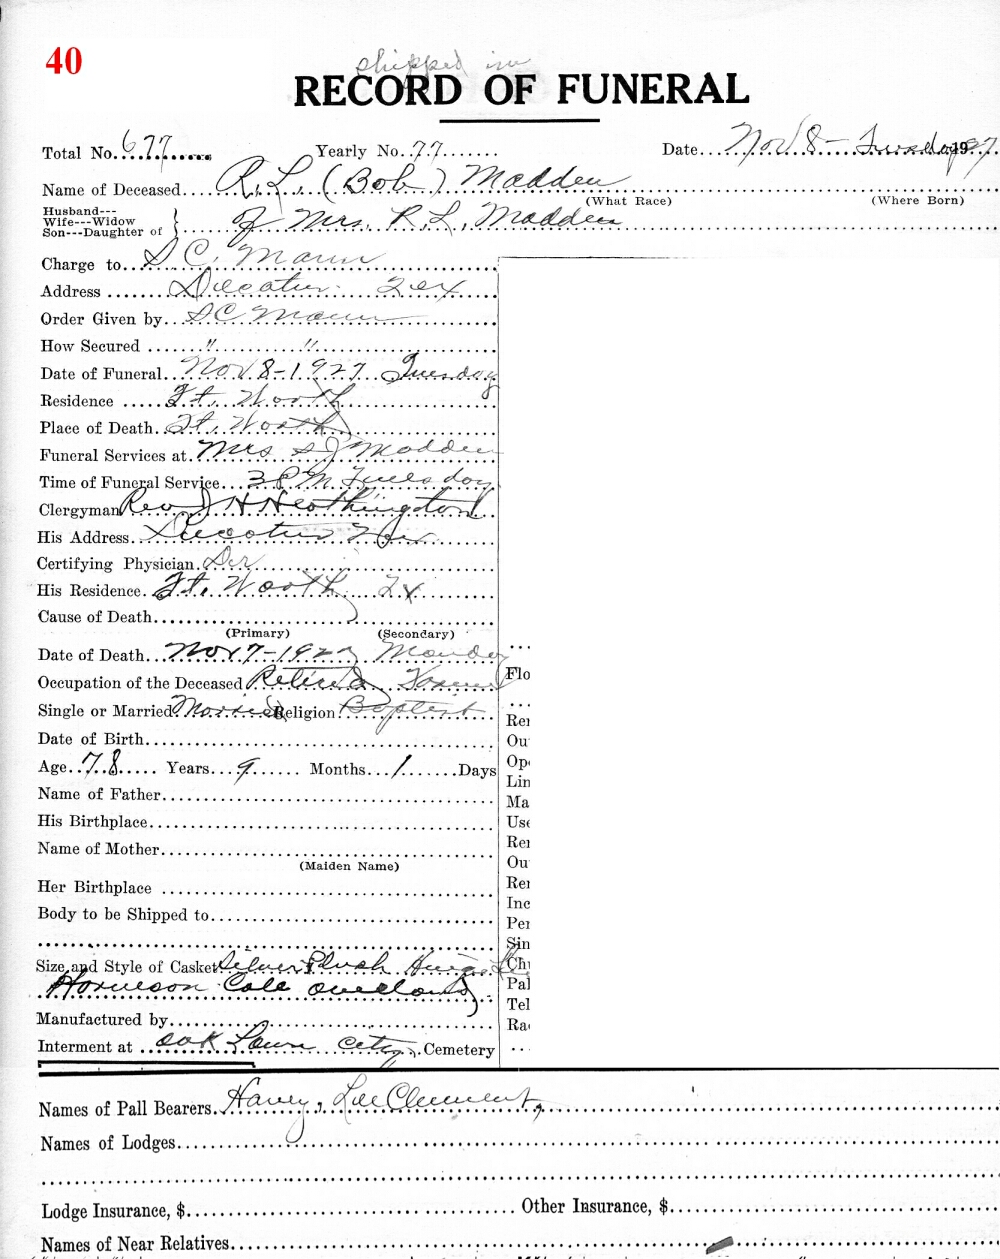 40
shipped in
RECORD OF FUNERAL
Total No. 677 Yearly No. 77 Date Nov 8- Tuesday 1927
Name of Deceased R. L. (Bob) Madden
(What Race) (Where Born)
Husband---
Wife---Widow
Son---Daughter of } of Mrs. R. L. Madden
Charge to S C. Mann
Address Decatur Tex
Order Given by SC Mann
How Secured " "
Date of Funeral Nov 8-1927 Tuesday
Residence Ft. Worth
Place of Death Ft. Worth
Funeral Services at Mrs S J Madden
Time of Funeral Service 3 PM Tuesday
Clergyman Rev J H Heathington
His Address Decatur Tex
Certifying Physician Dr
His Residence Ft. Worth Tx
Cause of Death
(Primary) (Secondary)
Date of Death Nov 7-1927 Monday
Occupation of the Deceased Retired Farmer
Flo
Single or Married? Married Religion Baptist
Rem
Date of Birth
Ou
Age 78 Years 9 Months 1 Days
Ope
Lin
Name of Father
Ma
His Birthplace
Use
Rei
Name of Mother
Ou
(Maiden Name)
Her Birthplace
Rei
Inc
Body to be Shipped to
Per
Sin
Size and Style of Casket Silver Plush
Ch
Cole
Pal
Tel
Manufactured by
Ra
Interment at Oak Lawn City Cemetery
Names of Pall Bearers Harvey, Lee Clement,
Names of Lodges
Lodge Insurance, $ Other Insurance, $
Names of Near Relatives